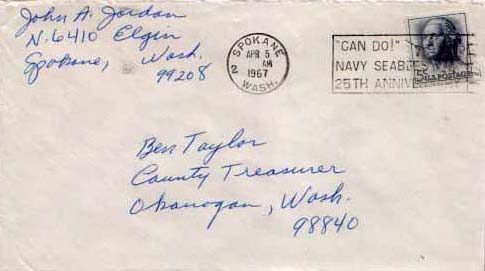 John A. Jordan
N. 6410 Elgin
Spokane, Wash.
99208
SPOKANE
APR 5
AM
2
1967
WASH.
"CAN DO!"
NAVY SEABEES
25TH ANNIV
5¢
U.S. POSTAGE
Ben Taylor
County Treasurer
Okanogan, Wash.
98840